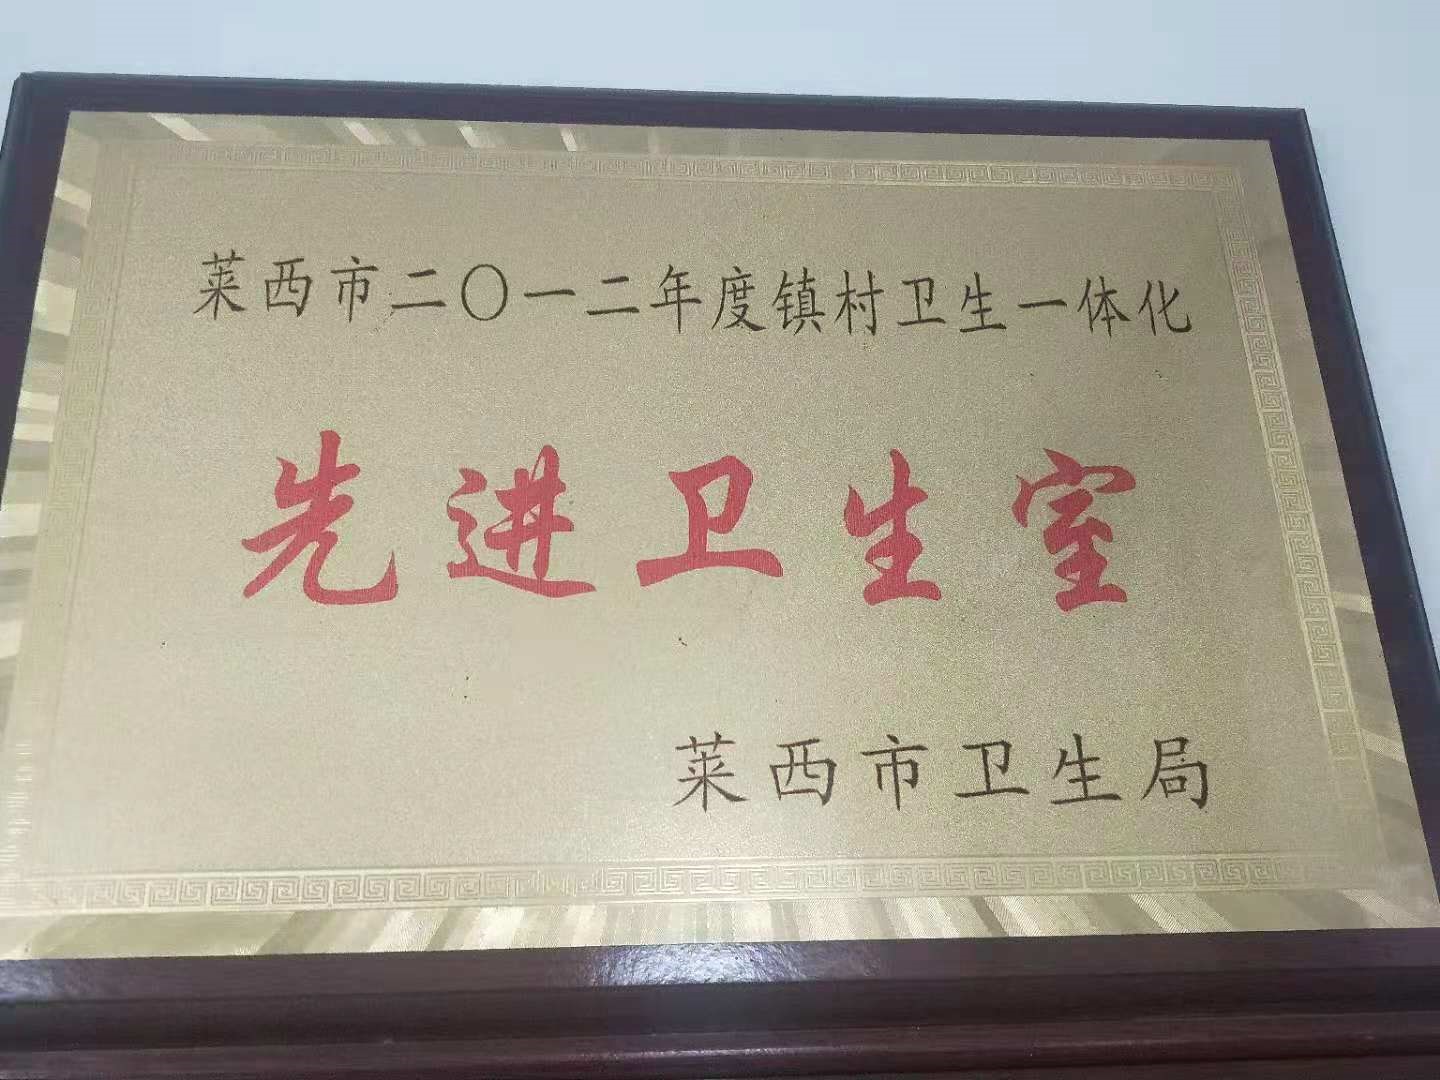 莱西市二〇一二年度镇村卫生一体化
先进卫生室
莱西市卫生局